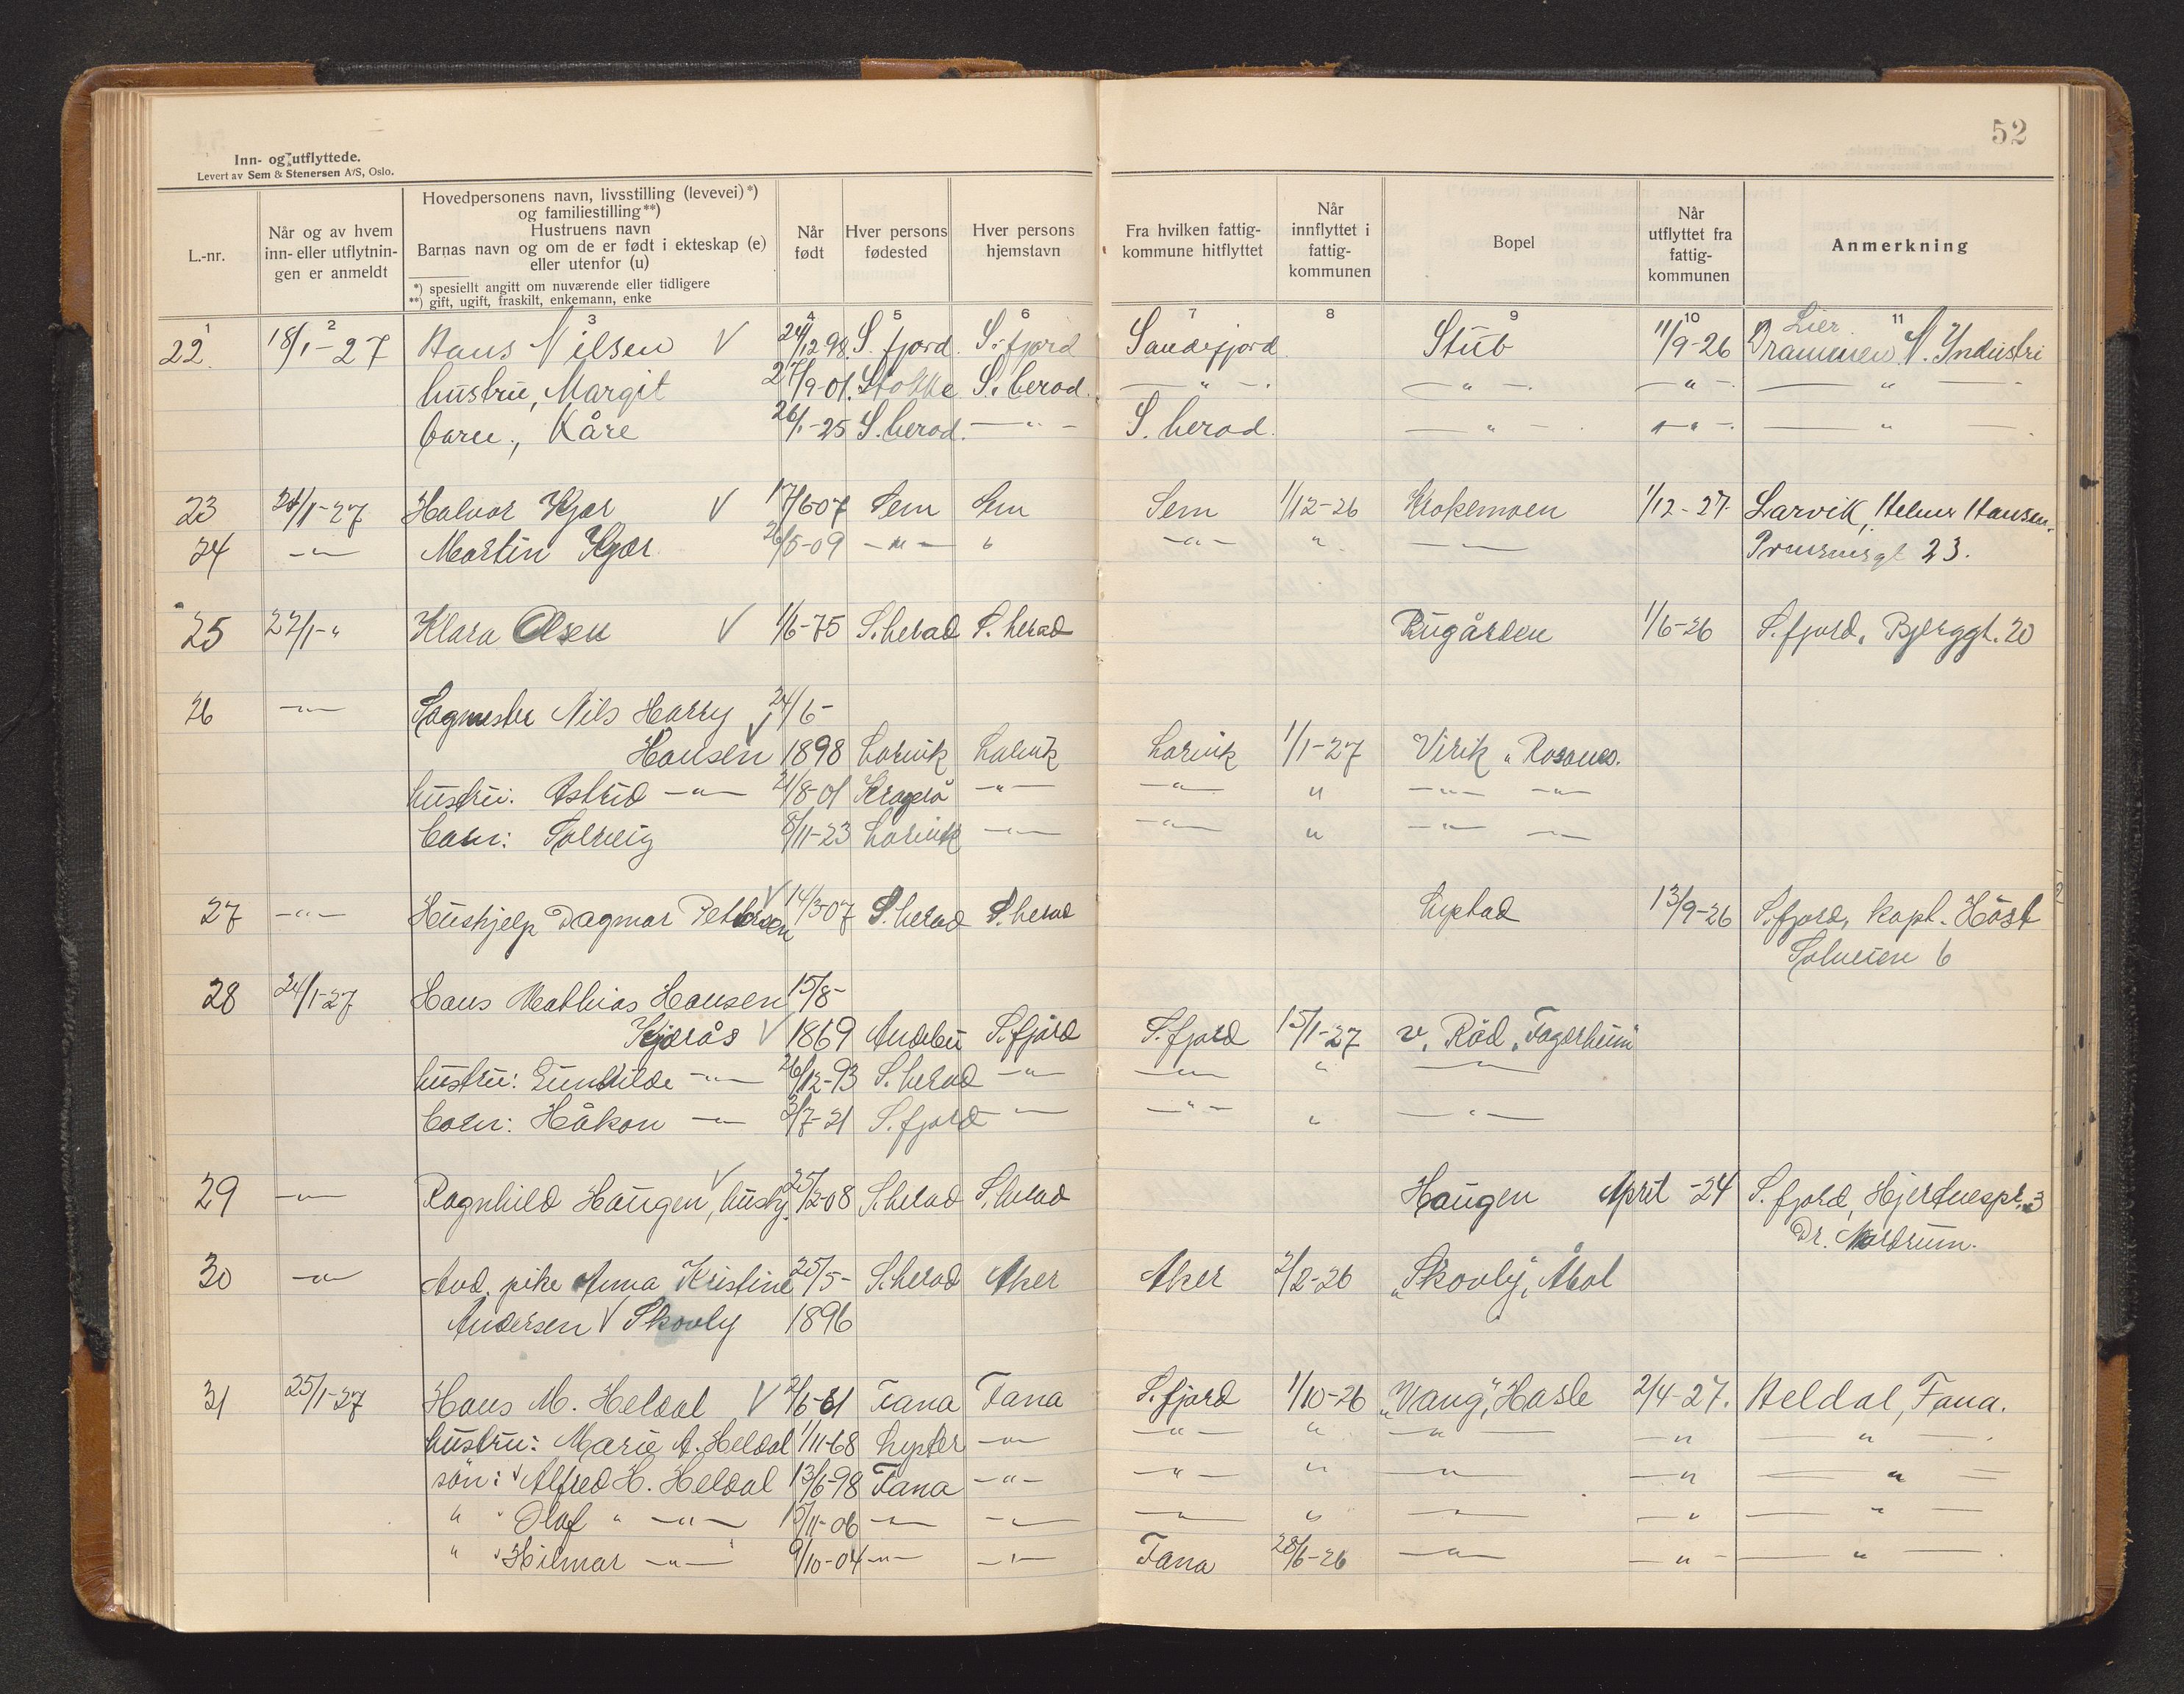 52
Inn- og utflyttede.
Levert av Sem & Stenersen A/S, Oslo.
L.-nr.
Når og av hvem inn- eller utflytnin- gen er anmeldt
Hovedpersonens navn, livsstilling (levevei)*) og familiestilling**) Hustruens navn Barnas navn og om de er født i ekteskap (e) eller utenfor (u)
*) spesiellt angitt om nuværende eller tidligere
**) gift, ugift, fraskilt, enkemann, enke
Når født
Hver persons fødested
Hver persons hjemstavn
Fra hvilken fattig- kommune hitflyttet
Når innflyttet i fattig- kommunen
Bopel
Når utflyttet fra fattig- kommunen
Anmerkning
1 2 3 4 5 6 7 8 9 10 11
Lier.
22 18/1-27 Hans Nilsen V 24/12-98. S. fjord. S. fjord Sandefjord Stub 11/9-26 Drammen N. Industri
hustru, Margit 27/9-01. Stokke S. herad. -"- -"- -"- -"-
barn, Kåre 26/1-25 S. herad. -"- S. herad. -"- -"- -"-
23 21/1-27 Halvor Kjær V 17/6-07 Sem Sem Sem 1/12-26 Krokemoen 1/12-27. Larvik, Helmer Hansen.
24 -"- Martin Kjær 26/5-09 -"- " -"- " -"- 23.
25 22/1-" Klara Olsen V 1/6-75 S. herad S. herad Bugården 1/6-26 S. fjord, Bjerggt. 20
26 -"- Sagmester Nils Harry V 24/6-
Hansen 1898 Larvik Larvik Larvik 1/1-27 Virik "Rosanes.
hustru: Astrid -"- 21/8-01 Kragerø -"- -"- " -"- -"-
barn: Solveig 8/11-23 Larvik -"- -"- " -"- -"-
27 -"- Hushjelp Dagmar Pettersen V 14/3-07 S. herad S. herad Lystad 13/9-26 S. fjord, kapt. Höst
Solveien 6
28 24/1-27 Hans Mathias Hansen 15/8-
Kjærås V 1869 Andebu S. fjord S. fjord 15/1-27 v. Råd, Fagerheim
hustru: Gunhilde -"- 26/12-93 S. herad -"- -"- " -"-
barn: Håkon -"- 3/7-21 S. fjord -"- -"- " -"-
29 -"- Ragnhild Haugen, V hushj. 25/2-08 S. herad S. herad Haugen April -24 S. fjord, Hjertnespr. 3
Dr. Nordrum.
30 -"- And. pike Anna Kristine 25/5- S. herad Aker Aker 2/2-26 "Skovly", Åbol
Andersen V Skovly 1896
31 25/1-27 Hans M. Heldal V 2/6-61 Fana Fana S. fjord 1/10-26 "Vang", Hasle 2/4-27. Heldal, Fana.
hustru: Marie A. Heldal 1/11-68 Lyster -"- -"- " -"- -"- -"-
sön: V Alfred H. Heldal 13/6-98 Fana -"- -"- " -"- -"- -"-
" " Olaf " -"- 15/11-06 -"- -"- -"- " -"- -"- -"-
" V Hilmar -"- 9/10-04 -"- -"- Fana 28/6-26 -"- -"- -"-